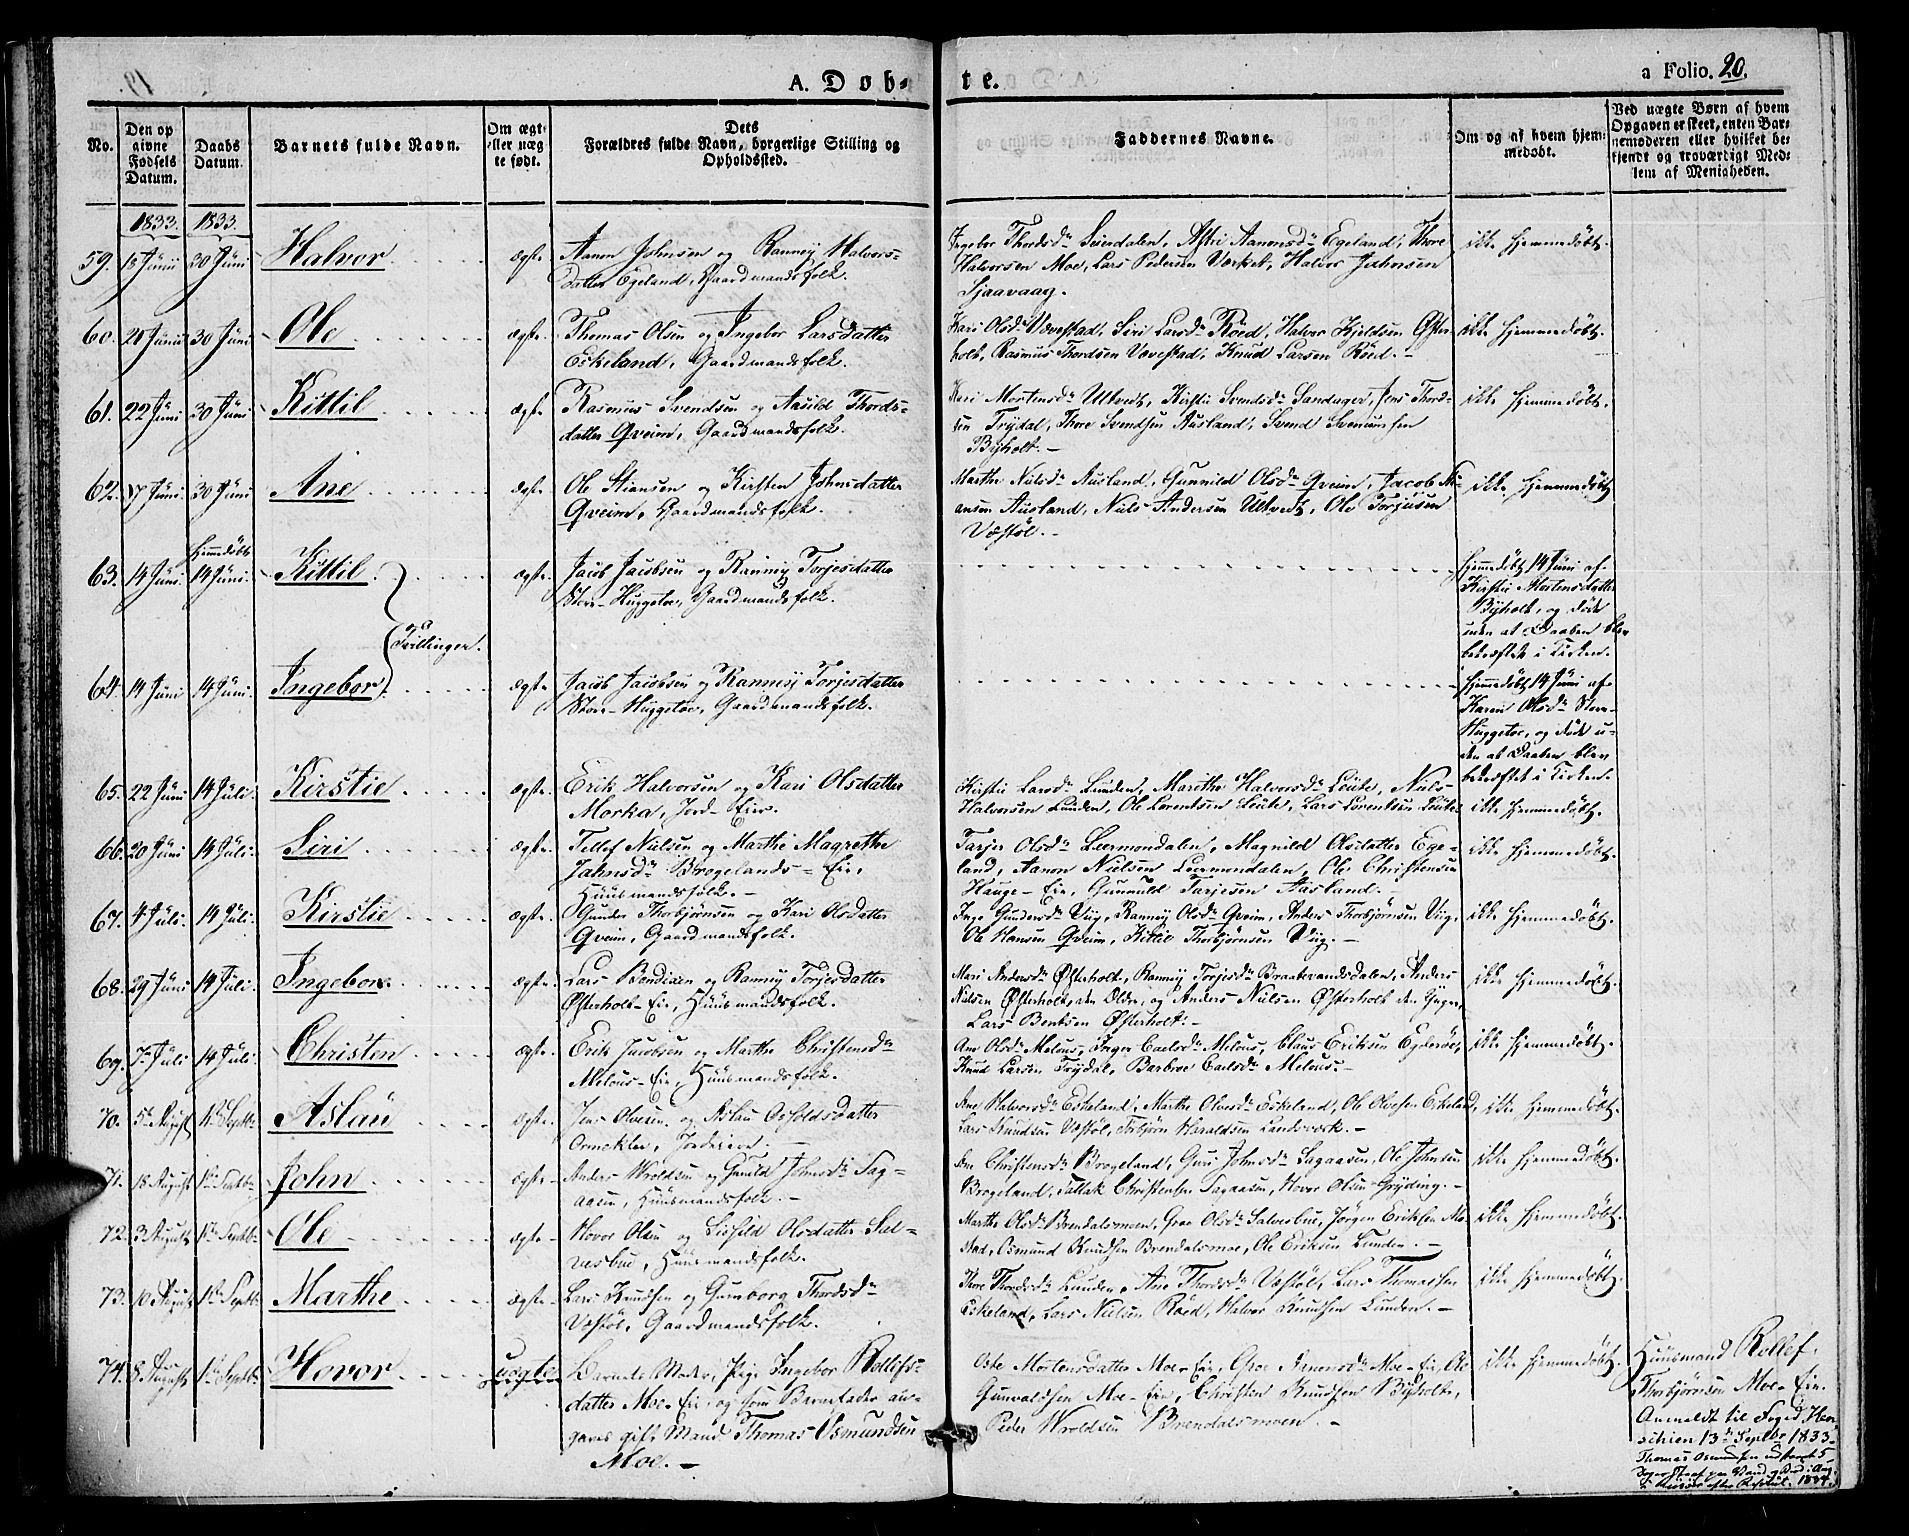 A. Döb-
te.
a Folio. 20.
No.
Den op
givne
Fødsels
Datum.
Daabs
Datum.
Barnets fulde Navn.
Om ægte
eller uæg
te født.
Dets
Forældres fulde Navn, borgerlige Stilling og
Opholdssted.
Faddernes Navne.
Om og af hvem hjem-
medøbt.
Ved uægte Børn af hvem
Opgaven er skeet, enten Bar-
nemoderen eller hvilket be-
kjendt og troværdigt Med-
lem af Menigheden.
1833. 1833.
59. 15 Juni 30 Juni Halvor ægte. Aanon Johnsen og Ranney Halvors-
datter Egeland, Gaardmandsfolk.
Ingebor Thordsdr, Astri Aanonsdr Egeland, Thore
Halvorsen Moe, Lars Pedersen Værket, Halvor Jahnsen
Sjaavaag.
ikke hjemmedöbt.
60. 20 Juni 30 Juni Ole ægte. Thomas Olsen og Ingebor Larsdatter
Eskeland, Gaardmandsfolk.
Kari Olsdr Vævestad, Siri Larsdr Röed, Halvor Kjeldsen Öster-
holt, Rasmus Thordsen Vævestad, Knud Larsen Röed.-
ikke hjemmedöbt.
61. 22 Juni 30 Juni Kittil ægte. Rasmus Svendsen og Aasild Thords-
datter Qveim, Gaardmandsfolk.
Kari Mortensdr Ulltvedt, Kirstie Svendsdr Sandager, Jens Thord-
sen Trydal, Thore Svendsen Ausland, Svend Svenumsen
Byholt.-
ikke hjemmedöbt.
62. 17 Juni 30 Juni Ane ægte. Ole Stiansen og Kirsten Johnsdatter
Qveim, Gaardmandsfolk.
Marthe Nilsdr Ausland, Gunnild Olsdr Qveim, Jacob
Ausland, Niels Andersen Ulltvedt, Ole Torjusen
Væstöl.-
ikke hjemmedöbt
63. 14 Juni. hjemedöbt 14 Juni. Kittil Tvillinger. ægte. Jacob Jacobsen og Ranney Torjesdatter
Store-Huggetoe, Gaardmandsfolk.
hjemedöbt 14 Juni af
Kirstie Mortensdatter
Byholt, og döde
uden at Daaben blev
bekræftet i Kirken.
64. 14 Juni 14 Juni. Ingebor ægte. Jacob Jacobsen og Ranney Torjesdatter
Store-Huggetoe, Gaardmandsfolk.
hjemedöbt 14 Juni af
Karen Olsdr Store-
Huggetoe, og döde u-
den at Daaben blev
bekræftet i Kirken.
65. 22 Juni 14 Juli. Kirstie ægte. Erik Halvorsen og Kari Olsdatter
Morka, Jord-Eier.
Kirstie Larsdr Lunden, Marethe Halvorsdr Leite, Nils
Halvorsen Lunden, Ole Lorentsen Leite, Lars Lorentsen Leite.
ikke hjemmedöbt.
66. 20 Juni 14 Juli. Siri ægte. Tellef Nielsen og Marthe Magrethe
Jahnsdr Brogelands-Eie,
Huusmandsfolk.-
Tarjer Olsdr Leermondalen, Magnild Olsdatter Ege-
land, Aanon Nielsen Leermondalen, Ole Christensen
Hauge-Eie, Gunnuld Tarjesen Ausland.-
ikke hjemmedöbt.
67. 4 Juli. 14 Juli. Kirstie ægte. Gunder Thorbjörnsen og Kari Olsdatter
Qveim, Gaardmandsfolk.
Inge Gundersdr Viig, Ranney Olsdr Qveim, Anders Thorbjörnsen Viig,
Ole Hansen Qveim, Kittil Thorbjörnsen Viig.-
ikke hjemmedöbt.
68. 29 Juni 14 Juli. Ingebor. ægte. Lars Bendixen og Ranney Torjesdatter
Österholt-Eie, Huusmandsfolk.
Mari Andersdr Österholt, Ranney Torjesdr Braatvandsdalen, Anders
Nielsen Österholt, den Eldre, og Anders Nielsen Österholt den Yngre,
Lars Bentsen Österholt.-
ikke hjemmedöbt.
69. 7 Juli 14 Juli. Christen ægte. Erik Jacobsen og Marthe Christensdr
Melous-Eie, Huusmandsfolk.
Ane Olsdr Melous, Inger Carlsdr Melous, Claus Eriksen Egderöe,
Knud Larsen Trydal, Barbroe Carlsdr Melous.-
ikke hjemmedöbt.
70. 5te August 1te Septbr Aslau ægte. Jens Olvesen og Aslau Osoldsdatter
Ormekler, Jordeier.-
Ane Halvorsdr Eskeland, Marthe Olvesdr Eskeland, Ole Olvesen Eskeland,
Lars Knudsen Væstöl, Torbjörn Haraldsen Landsverk.-
ikke hjemmedöbt.
71. 18 August 1te Septbr. John ægte. Anders Wroldsen og Gunild Johnsdr Sag-
aasen, Huusmandsfolk.-
Christensdr Brogeland, Guri Johnsdr Sagaasen, Ole Johnsen
Brogeland, Tallak Christensen Sagaasen, Hovor Olsen Gryding.-
ikke hjemmedöbt.
72. 3 August 1te Septbr. Ole ægte. Hovor Olsen og Lisild Olsdatter Sel-
vesbue, Huusmandsfolk.
Marthe Olsdr Brendalsmoen, Groe Olsdr Salvesbue, Jörgen Eriksen Mo-
stad, Osmund Knudsen Brendalsmoe, Ole Eriksen Lunden.-
ikke hjemmedöbt.
73. 10 August 1te Septbr. Marthe ægte. Lars Knudsen og Gunborg Thordsdr
Væstöl, Gaardmandsfolk.
Thore Thordsdr Lunden, Ane Thordsdr Væstöl, Lars Thomassen
Eskeland, Lars Nielsen Röed, Halvor Knudsen Lunden.-
ikke hjemmedöbt.
74. 8 August 1te Septbr. Hovor uægte Barnets Moder, Pige Ingebor Rollefs-
datter Moe-Eie, og som Barnefader an-
gaves gift Mand Thomas Osmundsen
Moe.-
Oste Mortensdatter Moe-Eie, Groe Arnesdr Moe-Eie, Ole
Gunvaldsen Moe-Eie, Christen Knudsen Byholte,
Peder Wroldsen Brendalsmoen.-
ikke hjemmedöbt.
Huusmand Rollef
Thorbjörnsen Moe-Eie.
Anmeldt til Foged
13de Septbr 1833.
Thomas Osmundsen